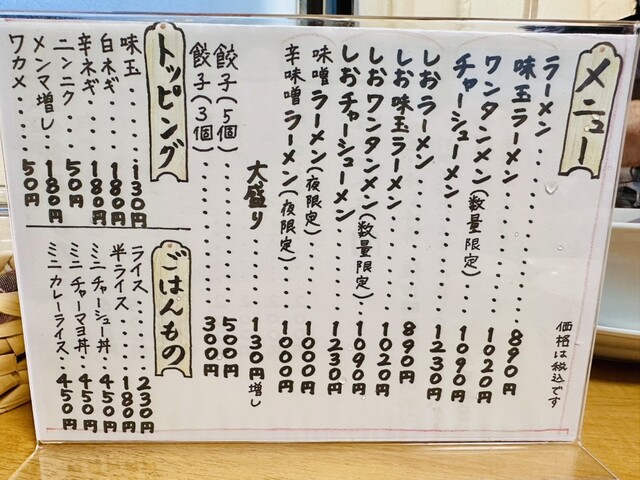 メニュー
ラーメン・・・・・・890円
味玉ラーメン・・・・・1020円
ワンタンメン(数量限定)・・1090円
チャーシューメン・・・・1230円
しおラーメン・・・・・890円
しお味玉ラーメン・・・・1020円
しおワンタンメン(数量限定)・・1090円
しおチャーシューメン・・・・1230円
味噌ラーメン(夜限定)・・・1000円
辛味噌ラーメン(夜限定)・・・1000円
大盛り・・・・・130円増し
餃子(5個)・・・・・500円
餃子(3個)・・・・・300円
価格は税込です
トッピング
味玉・・・・130円
白ネギ・・・180円
辛ネギ・・・180円
ニンニク・・・50円
メンマ増し・・180円
ワカメ・・・・50円
ごはんもの
ライス・・・・230円
半ライス・・・180円
ミニチャーシュー丼・・450円
ミニチャーマヨ丼・・450円
ミニカレーライス・・450円